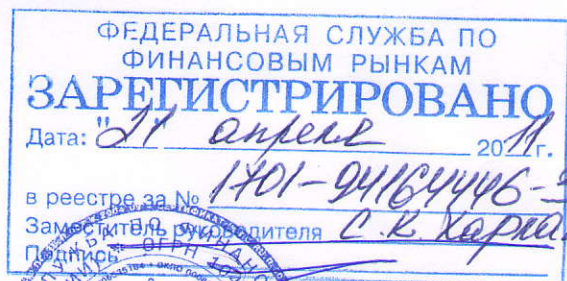 ФЕДЕРАЛЬНАЯ СЛУЖБА ПО
ФИНАНСОВЫМ РЫНКАМ
ЗАРЕГИСТРИРОВАНО
Дата: "21 апреля 2011г.
в реестре за № 1701-94164446-
Заместитель руководителя С.К. Харла
Подпись
ОГРН